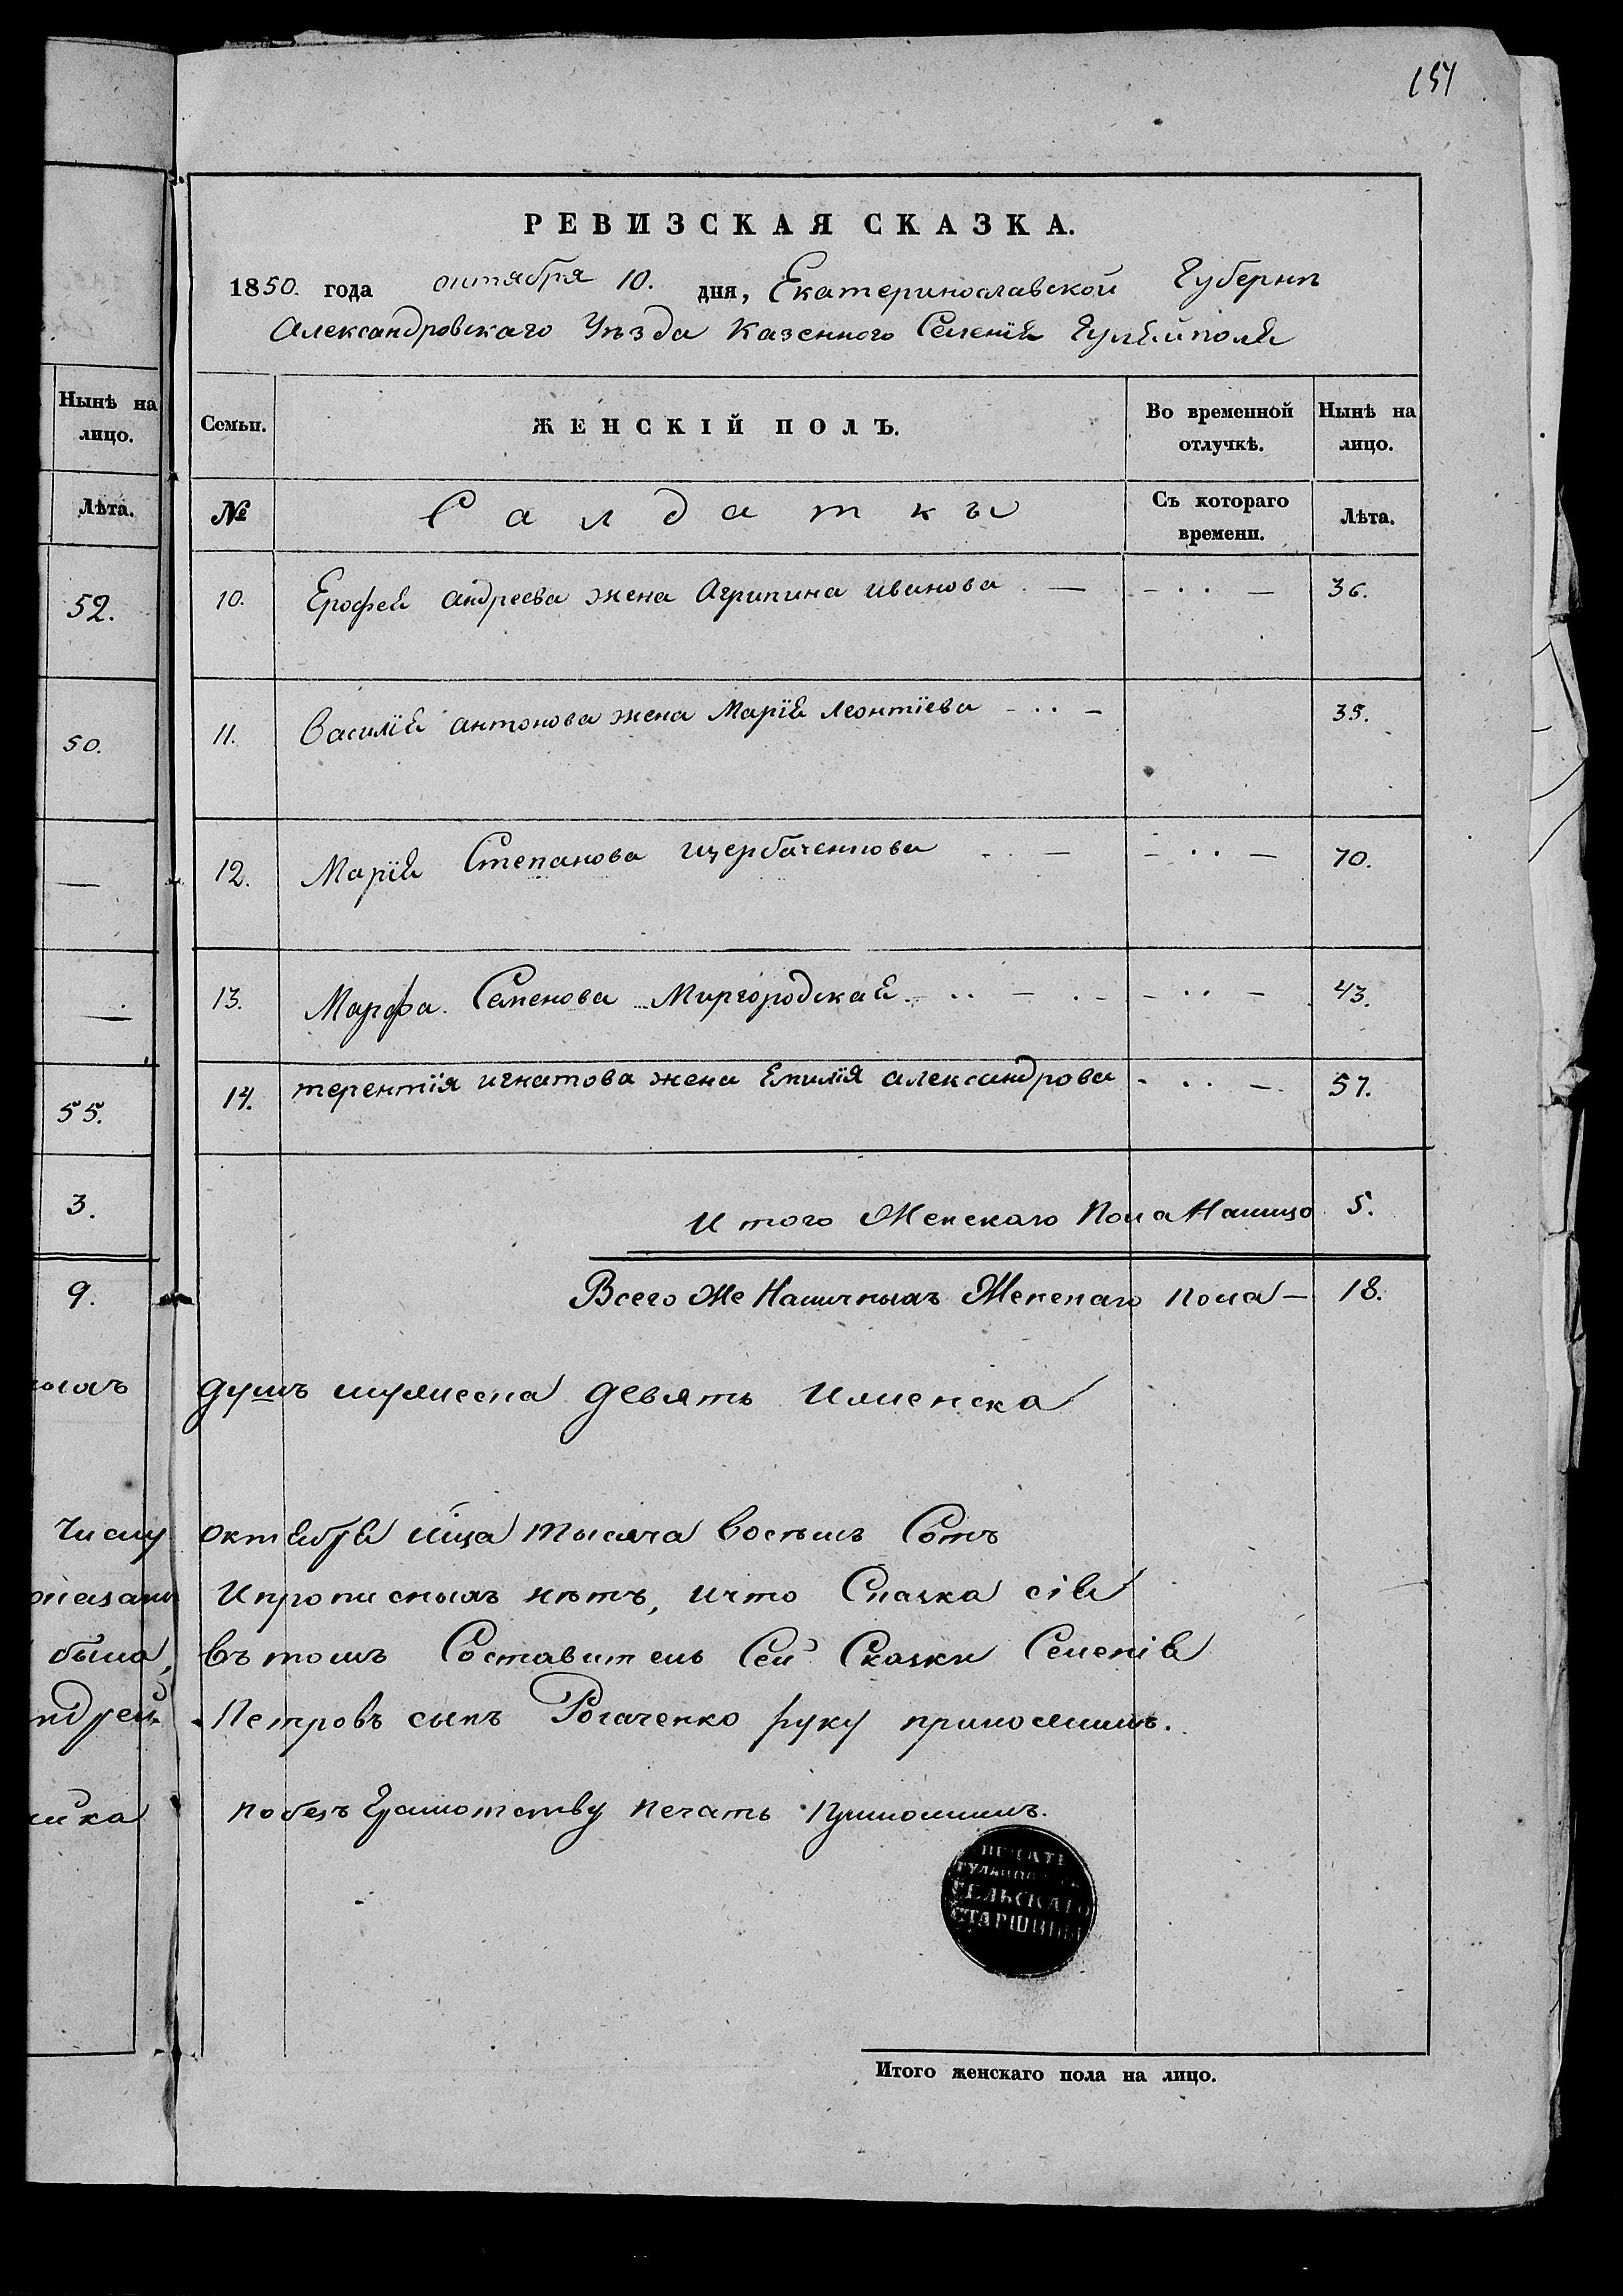 151
РЕВИЗСКАЯ СКАЗКА.
1850. года октября 10. дня, Екатеринославской Губерніи
Александровскаго Уѣзда Казенного Селенія Гуляйполя
Нынѣ на лицо.
Лѣта.
52.
50.
—
—
55.
3.
9.
Семьи. ЖЕНСКІЙ ПОЛЪ. Во временной отлучкѣ. Нынѣ на лицо.
№ Салдаткы Съ котораго времени. Лѣта.
10. Ерофея андреева жена Агрипина иванова . — - . . — 36.
11. Василія антонова жена Марія Леонтіева - . . - 35.
12. Марія Степанова щербаченкова - . — - . . — 70.
13. Марфа Семенова Миргородская - . . — . - - . . - 43.
14. терентія игнатова жена Емилія александрова - . . — 57.
Итого Женскаго Пола Налицо 5.
Всего Же Наличныхъ Женскаго пола — 18.
ныхъ душъ мужеска девять Иженска
числу октября мца тысяча восемъ Сотъ
Ипрописныхъ нѣтъ, ичто Сказка сія
была, въ томъ Составитель Сей Сказки Селенія
ндрей Петровъ сынъ Рогаченко руку приложилъ.
по безъ Грамотству печать Приложилъ.
ПЕЧАТЬ
СЕЛЬСКАГО
СТАРШИНЫ
Итого женскаго пола на лицо.